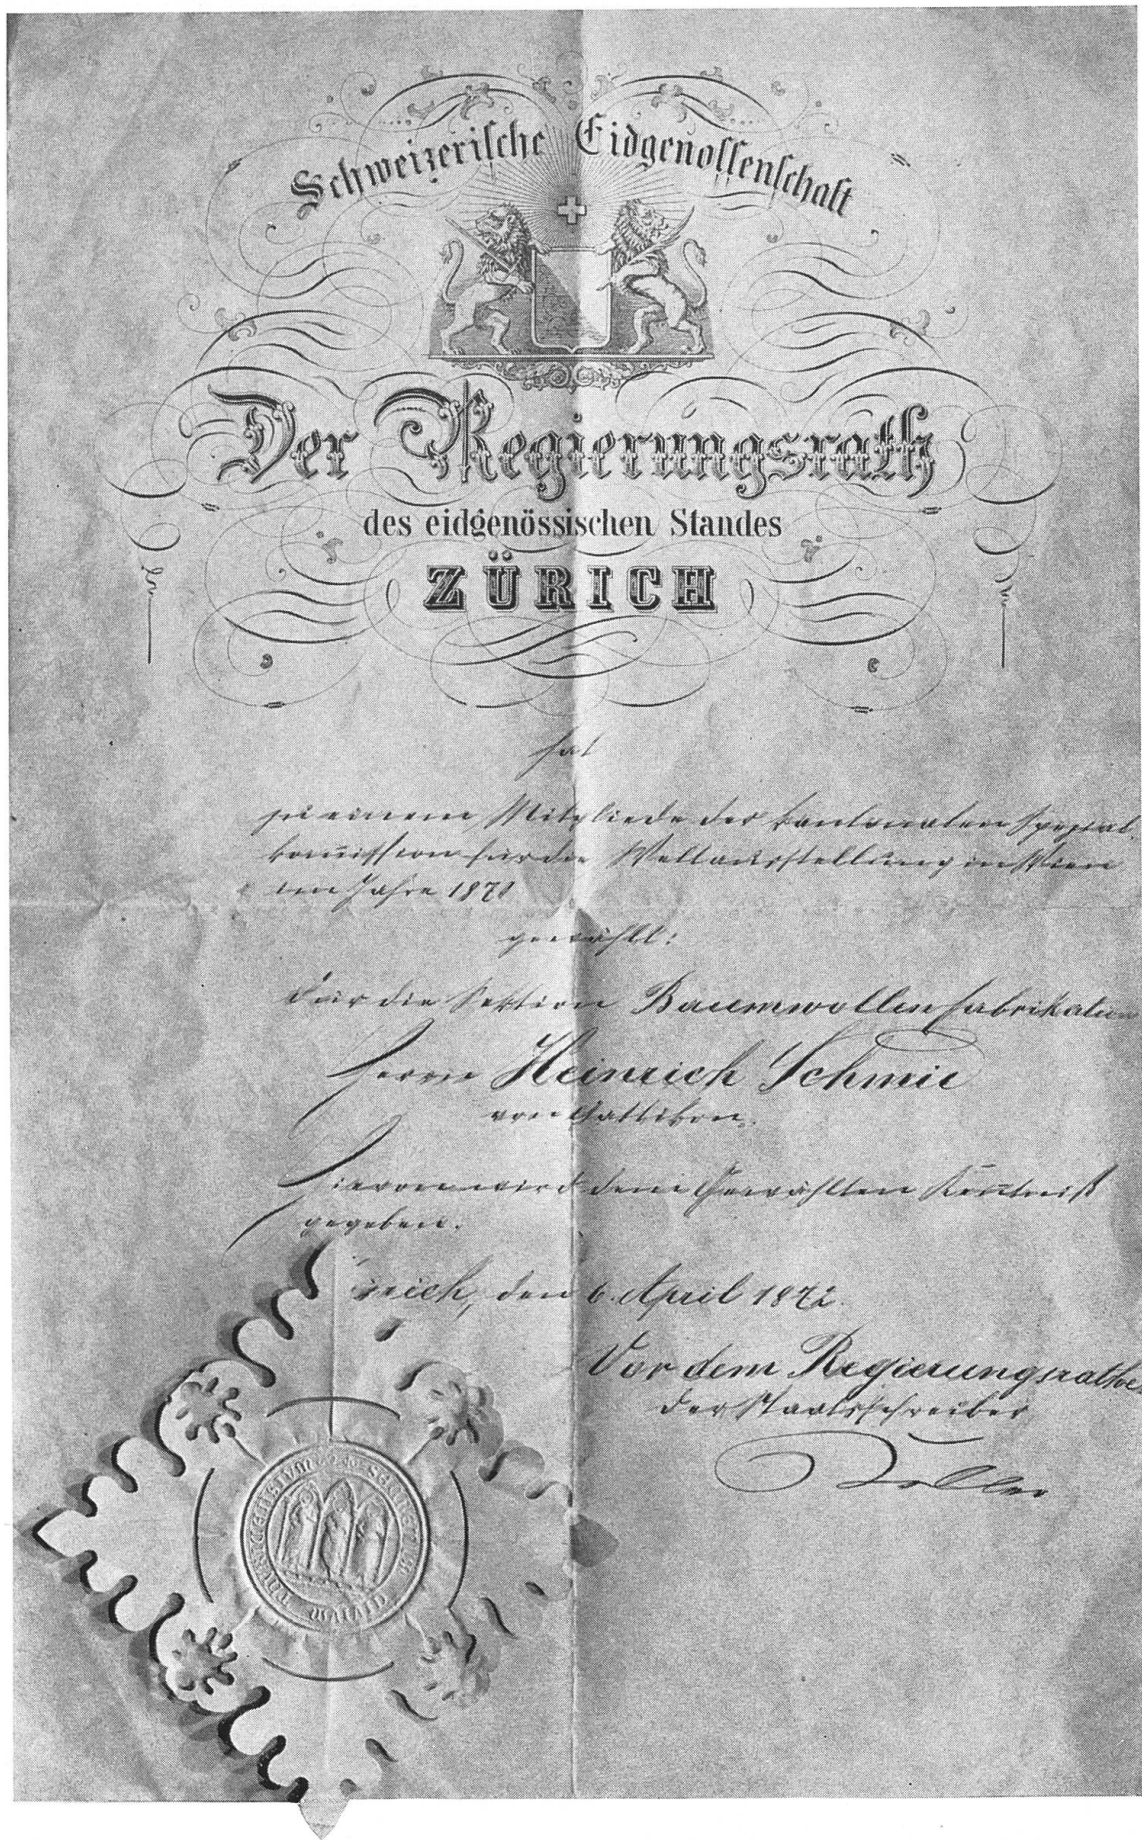 Schweizerische Eidgenossenschaft
Der Regierungsrath
des eidgenössischen Standes
ZÜRICH
hat
zu einem Mitgliede der kantonalen Spezial-
kom̅ission für die Weltausstellung in Wien
im Jahre 1873
gewählt:
Für die Sektion Baumwollenfabrikation
Herrn Heinrich Schmid
von Gattikon.
Hievon wird dem Gewählten Ken̅tniß
gegeben.
Zürich, den 6. April 1872.
Vor dem Regierungsrathe
der Staatsschreiber
Keller
CIVIUM THURICENSIUM